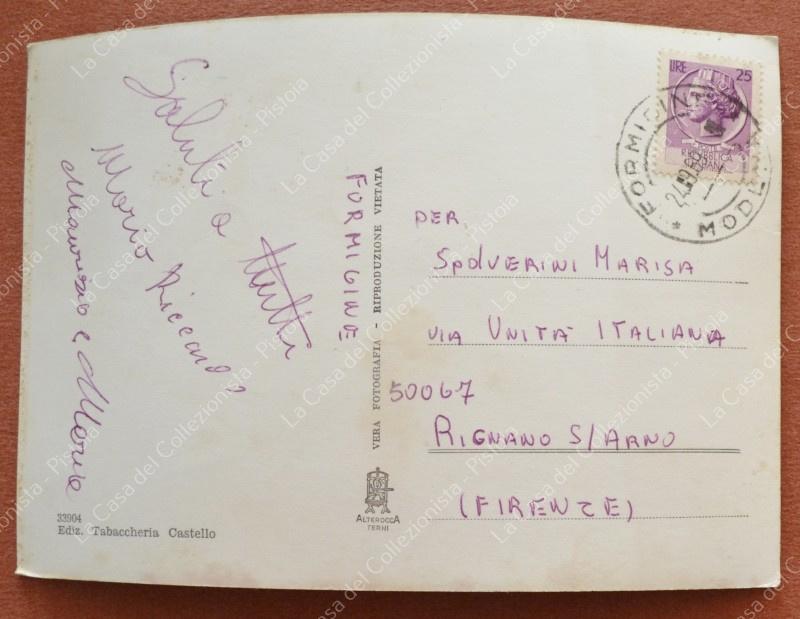 Saluti a tutti
Mario Riccardo
Maurizio e Maria
FORMIGINE
VERA FOTOGRAFIA - RIPRODUZIONE VIETATA
LIRE 25
REPUBBLICA
ITALIANA
FORMIGINE
* MODENA
PER
SPOLVERINI MARISA
VIA UNITÀ ITALIANA
50067
RIGNANO S/ARNO
(FIRENZE)
ALTEROCCA
TERNI
33904
Ediz. Tabaccheria Castello
La Casa del Collezionista - Pistoia